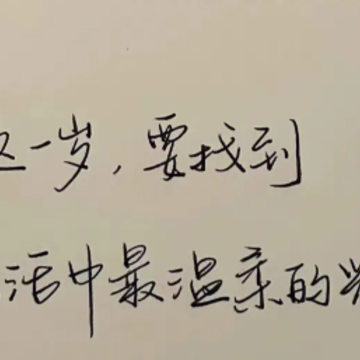 这一岁，要找到
活中最温柔的光